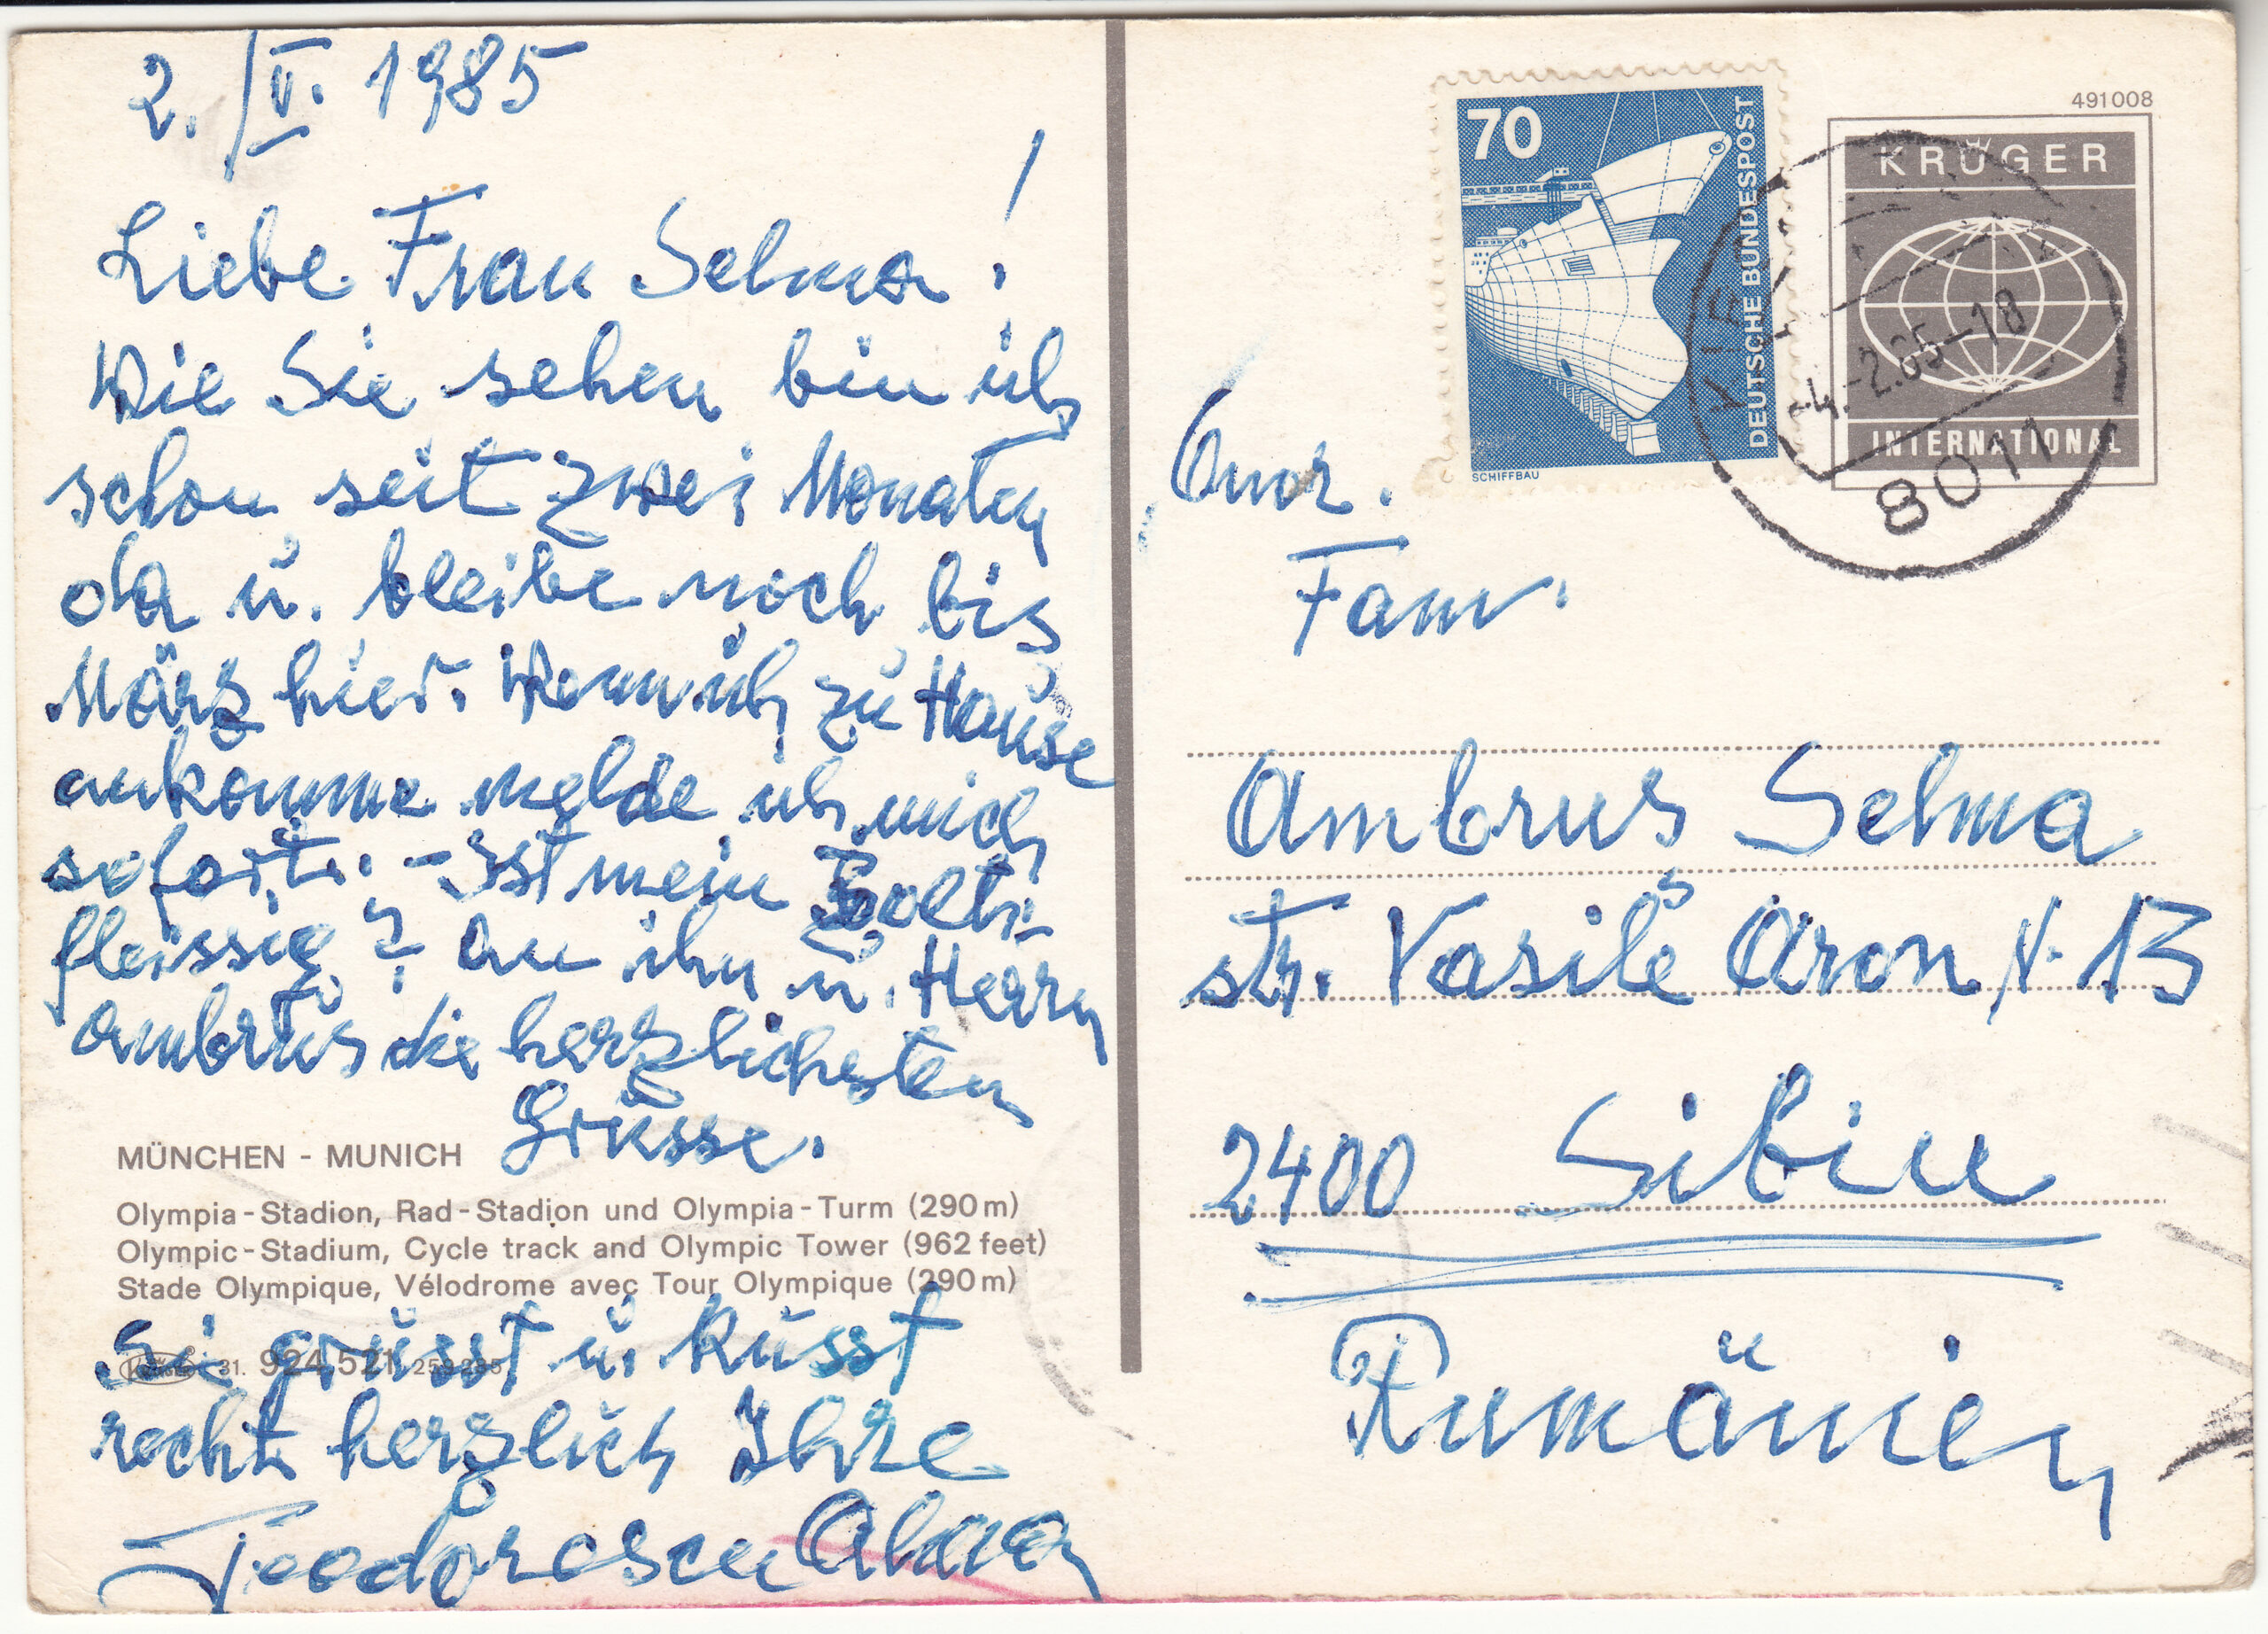 2. /II. 1985
Liebe Frau Selma!
Wie Sie sehen bin ich
schon seit zwei Monaten
da u. bleibe noch bis
März hier. Wenn ich zu Hause
ankomme melde ich mich
sofort. - Ist mein
fleissig? An ihn u. Herrn
Ambrus die herzlichsten
Grüsse.
MÜNCHEN - MUNICH
Olympia-Stadion, Rad-Stadion und Olympia-Turm (290m)
Olympic-Stadium, Cycle track and Olympic Tower (962 feet)
Stade Olympique, Vélodrome avec Tour Olympique (290m)
Sie grüsst u. küsst
31. 924.521
recht herzlich Ihre
Teodorescu Alma
70
DEUTSCHE BUNDESPOST
SCHIFFBAU
491008
KRÜGER
INTERNATIONAL
-4.-2.85-18
8011
Fam.
Ambrus Selma
str. Vasile Aron N. 13
2400 Sibiu
Rumänien